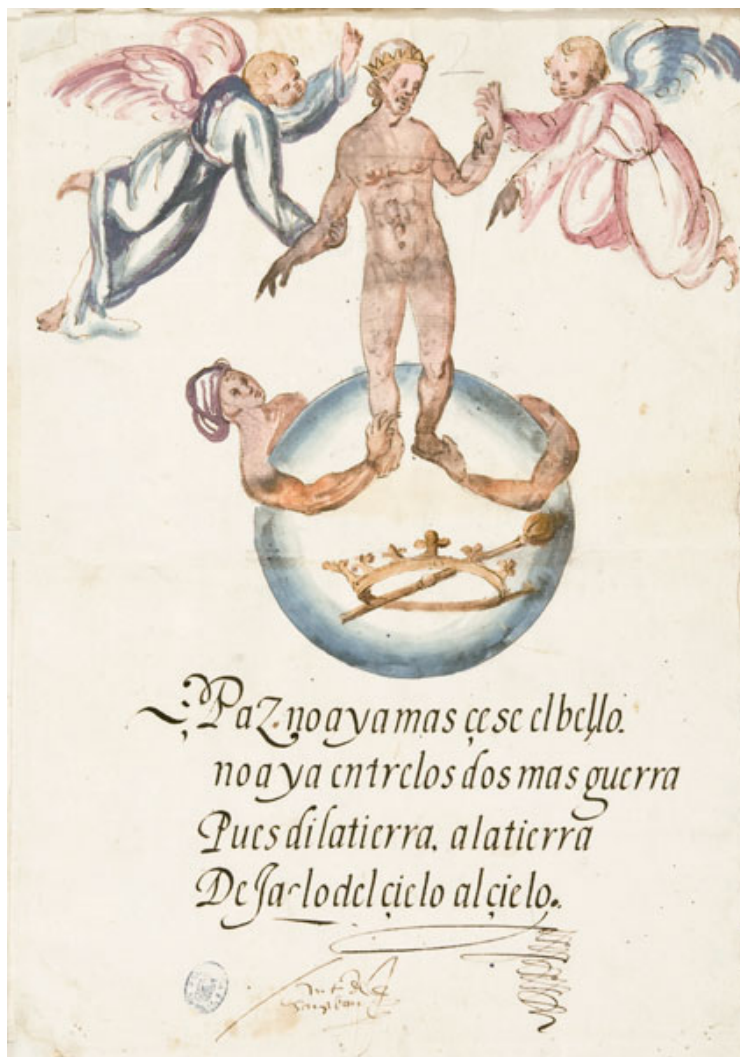 2
Paz. no aya mas çese el bello.
no aya entre los dos mas guerra
Pues di la tierra. a la tierra
Deja lo del çielo al çielo.